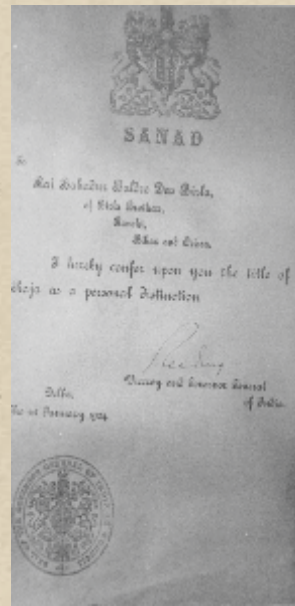 SANAD
To
Rai Bahadur Baldeo Das Birla,
of Birla Brothers,
Ranchi,
Bihar and Orissa.
I hereby confer upon you the title of
as a personal distinction
Viceroy and Governor General
of India.
Delhi,
The 1st 1924